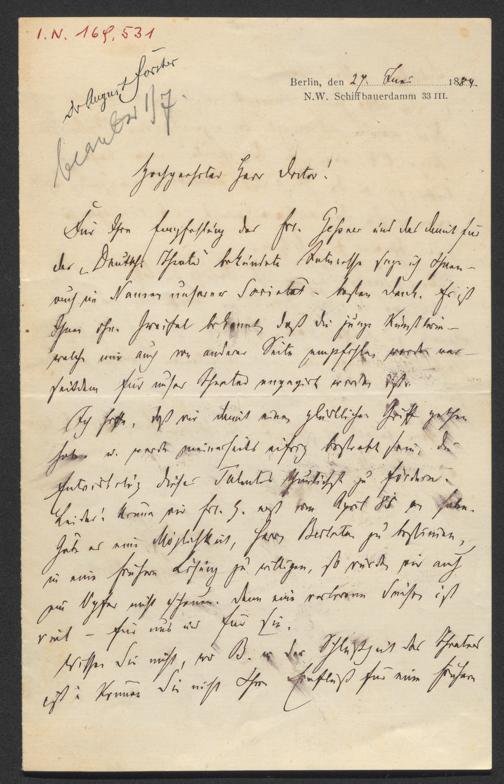 I.N. 169.531
Dr August Förster
beantw 1/7.
Berlin, den 27. Juni 1884.
N.W. Schiffbauerdamm 33 III.
Hochgeehrter Herr Doctor!
Für Ihre Empfehlung des Frl. Geßner und das damit für
das „Deutsche Theater" bekundete Interesse sage ich Ihnen –
auch im Namen unserer Societät – besten Dank. Es ist
Ihnen ohne Zweifel bekannt, daß die junge Künstlerin –
welche mir auch von anderer Seite empfohlen worden war –
seitdem für unser Theater engagirt worden ist.
Ich hoffe, daß wir damit einen glücklichen Griff gethan
haben u. werde meinerseits eifrig bestrebt sein, die
Entwicklung dieses Talentes zu fördern.
Leider können wir Frl. G. erst vom April 85 an haben.
Gäbe es eine Möglichkeit, Herrn zu bestimmen,
in eine frühere Lösung zu willigen, so würden wir auch
ein Opfer nicht scheuen. Denn eine verlorene Saison ist
viel – für uns und für sie.
Wissen Sie nicht, wo B. nach Schluß des Theaters
ist u. können Sie nicht Ihren Einfluß für eine frühere